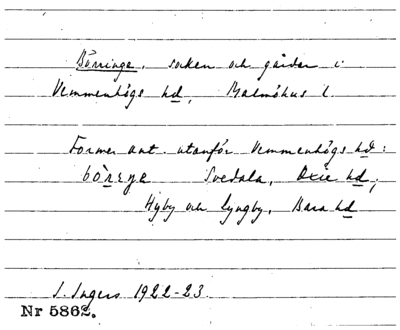 Börringe, socken och gårdar i
Vemmenhögs hd, Malmöhus l.
Former ant. utanför Vemmenhögs hd:
bö̀rɛŋe Svedala, Oxie hd;
Hyby och Lyngby, Bara hd
I. Ingers 1922-23.
Nr 5862.